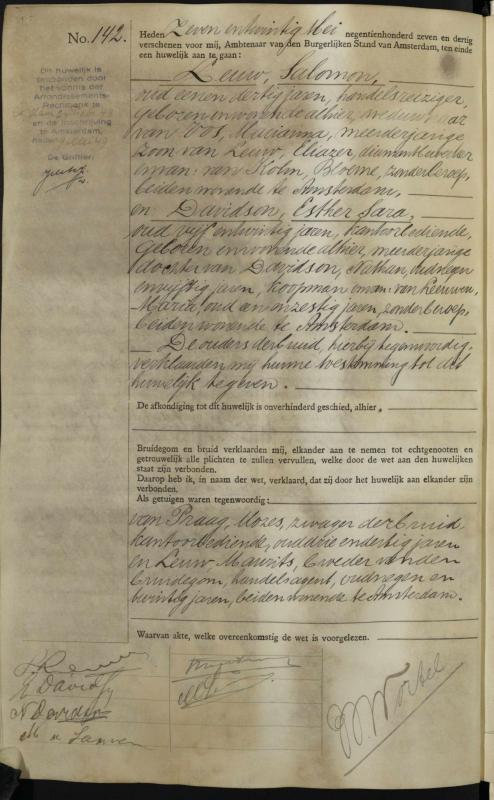 No. 142.
Heden Zeven en twintig Mei negentienhonderd zeven en dertig
verschenen voor mij, Ambtenaar van den Burgerlijken Stand van Amsterdam, ten einde
een huwelijk aan te gaan:
Leuw, Salomon,
oud eenen dertig jaren, handelsreiziger,
geboren en wonende alhier, weduwnaar
van Vos, Marianna, meerderjarige
zoon van Leuw, Eliazer, diamantbewerker
en van Kohn, Bloeme, zonder beroep,
beiden wonende te Amsterdam,
en Davidson, Esther Sara,
oud vijf en twintig jaren, kantoorbediende,
geboren en wonende alhier, meerderjarige
dochter van Davidson, Nathan, oud negen
en vijftig jaren, koopman en van Leeuwen,
Maria, oud een en zestig jaren, zonder beroep,
beiden wonende te Amsterdam.
De ouders der bruid, hierbij tegenwoordig,
verklaarden mij hunne toestemming tot dit
huwelijk te geven.
De afkondiging tot dit huwelijk is onverhinderd geschied, alhier.
Bruidegom en bruid verklaarden mij, elkander aan te nemen tot echtgenooten en
getrouwelijk alle plichten te zullen vervullen, welke door de wet aan den huwelijken
staat zijn verbonden.
Daarop heb ik, in naam der wet, verklaard, dat zij door het huwelijk aan elkander zijn
verbonden.
Als getuigen waren tegenwoordig:
van Praag, Mozes, zwager der bruid
kantoorbediende, oud drie en dertig jaren
en Leuw, Maurits, broeder van den
bruidegom, handelsagent, oud negen en
twintig jaren, beiden wonende te Amsterdam.
Waarvan akte, welke overeenkomstig de wet is voorgelezen.
Dit huwelijk is
ontbonden door
het vonnis der
Arrondissements-
Rechtbank te
en de inschrijving
te Amsterdam,
De Griffier,
E Davids
N Davidson